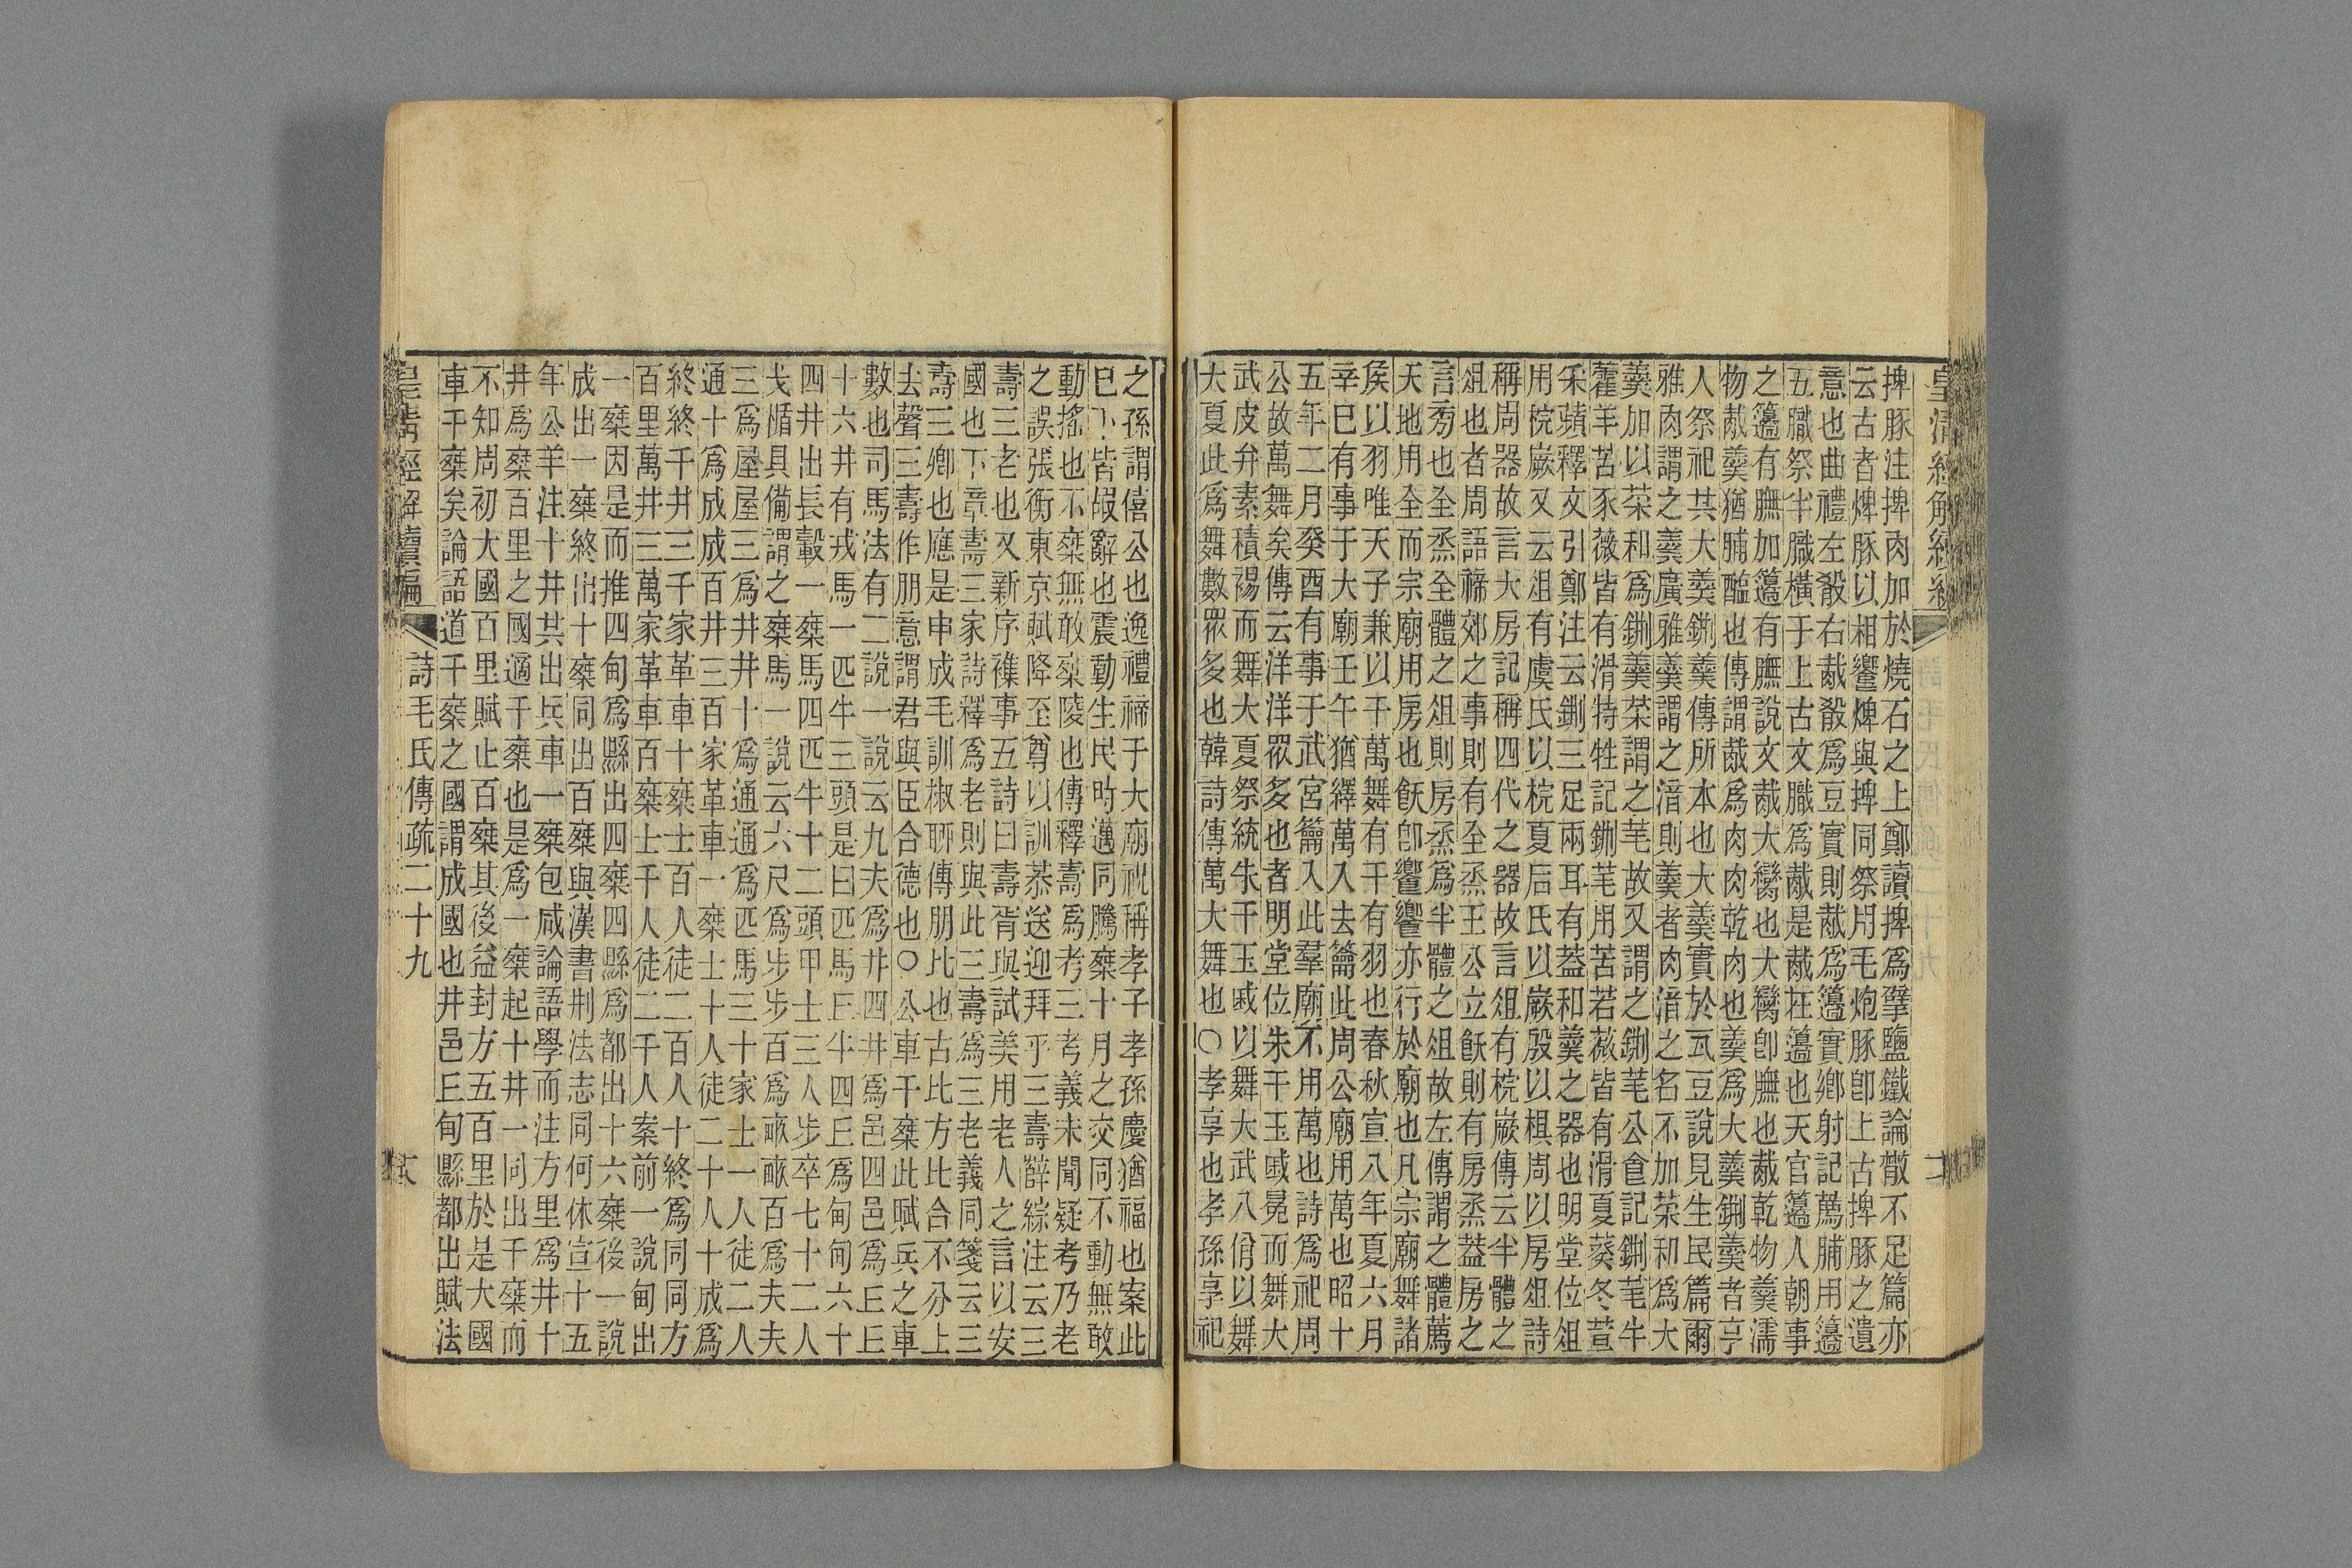 捭豚注捭肉加於燒石之上鄭讀捭爲擘鹽鐵論散不足篇亦
云古者燀豚以相饗燀與捭同祭用毛炮豚卽上古捭豚之遺
意也曲禮左殽右胾殽爲豆實則胾爲籩實鄉射記薦脯用籩
五膱祭半膱橫于上古文膱爲胾是胾在籩也天官籩人朝事
之籩有膴加籩有膴說文胾大臠也大臠卽膴也胾乾物羹濡
物胾羹猶脯醢也傳謂胾爲肉肉乾肉也羹爲大羹鉶羹者亨
人祭祀共大羹鉶羹傳所本也大羹實於瓦豆說見生民篇爾
雅肉謂之羹廣雅羹謂之湆則羹者肉湆之名不加菜和爲大
羹加以菜和爲鉶羹菜謂之芼故又謂之鉶芼公食記鉶芼牛
藿羊苦豕薇皆有滑特牲記鉶芼用苦若薇皆有滑夏葵冬荁
采蘋釋文引鄭注云鉶三足兩耳有蓋和羹之器也明堂位俎
用梡嶡又云俎有虞氏以梡夏后氏以嶡殷以椇周以房俎詩
稱周器故言大房記稱四代之器故言俎有梡嶡傳云半體之
俎也者周語禘郊之事則有全烝王公立飫則有房烝蓋房之
言旁也全烝全體之俎則房烝爲半體之俎故左傳謂之體薦
天地用全而宗廟用房也飫卽饗饗亦行於廟也凡宗廟舞諸
侯以羽唯天子兼以干萬舞有干有羽也春秋宣八年夏六月
辛巳有事于大廟壬午猶繹萬入去籥此周公廟用萬也昭十
五年二月癸酉有事于武宮籥入此羣廟不用萬也詩爲祀周
公故萬舞矣傳云洋洋眾多也者明堂位朱干玉戚冕而舞大
武皮弁素積裼而舞大夏祭統朱干玉戚以舞大武八佾以舞
大夏此爲舞數眾多也韓詩傳萬大舞也○孝享也孝孫享祀
之孫謂僖公也逸禮禘于大廟祝稱孝子孝孫慶猶福也案此
巳下皆嘏辭也震動生民時邁同騰椉十月之交同不動無敢
動搖也不椉無敢椉陵也傳釋壽爲考三考義未聞疑考乃老
之誤張衡東京賦降至尊以訓恭送迎拜乎三壽薛綜注云三
壽三老也又新序襍事五詩曰壽胥與試美用老人之言以安
國也下章壽三家詩釋爲老則與此三壽爲三老義同箋云三
壽三卿也應是申成毛訓椒聊傳朋比也古比方比合不分上
去聲三壽作朋意謂君與臣合德也○公車千椉此賦兵之車
數也司馬法有二說一說云九夫爲井四井爲邑四邑爲丘丘
十六井有戎馬一匹牛三頭是曰匹馬丘牛四丘爲甸甸六十
四井出長轂一椉馬四匹牛十二頭甲士三人步卒七十二人
戈楯具備謂之椉馬一說云六尺爲步步百爲畝畝百爲夫夫
三爲屋屋三爲井井十爲通通爲匹馬三十家士一人徒二人
通十爲成成百井三百家革車一椉士十人徒二十人十成爲
終終千井三千家革車十椉士百人徒二百人十終爲同同方
百里萬井三萬家革車百椉士千人徒二千人案前一說甸出
一椉因是而推四甸爲縣出四椉四縣爲都出十六椉後一說
成出一椉終出十椉同出百椉與漢書刑法志同何休宣十五
年公羊注十井共出兵車一椉包咸論語學而注方里爲井十
井爲椉百里之國適千椉也是爲一椉起十井一同出千椉而
不知周初大國百里賦止百椉其後益封方五百里於是大國
車千椉矣論語道千椉之國謂成國也井邑丘甸縣都出賦法
皇清經解續編 詩毛氏傳疏二十九